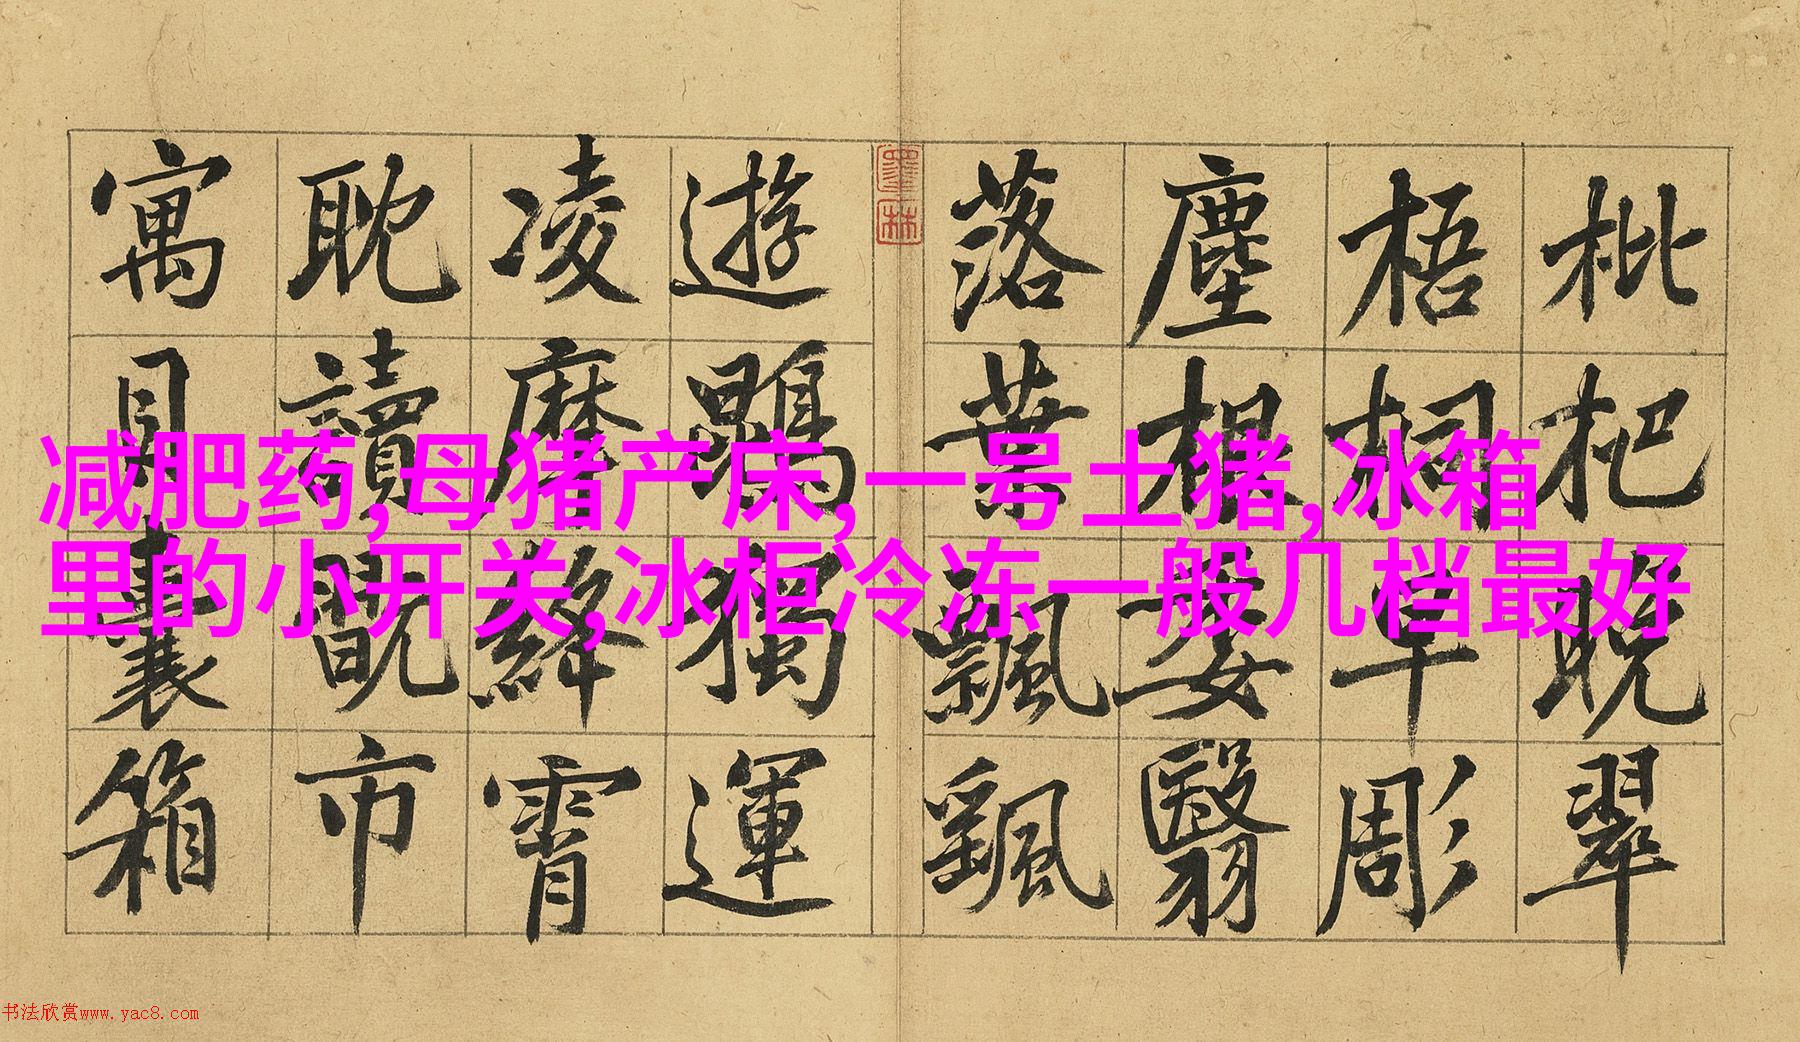 枇杷晚翠
梧桐早彫
塵根委翳
落葉飄颻
遊鵾獨運
凌摩絳霄
耽讀翫市
寓目囊箱
減肥药,母猪产床,一号土猪,冰箱
里的小开关,冰柜冷冻一般几档最好
墨林
书法欣赏www.yac8.com